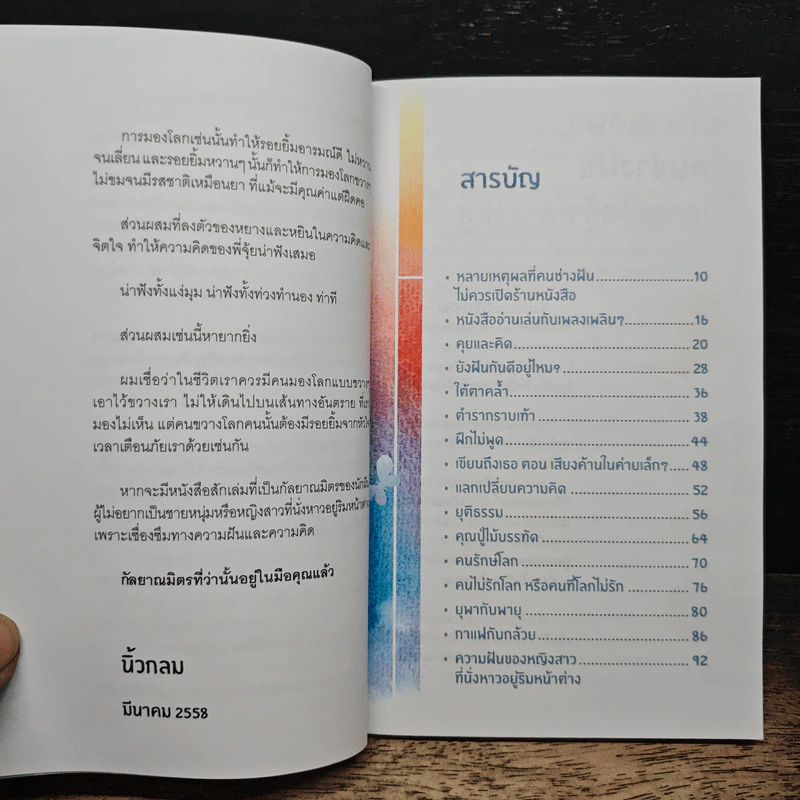 การมองโลกเช่นนั้นทำให้รอยยิ้มอารมณ์ดี ไม่หวาน
จนเลี่ยน และรอยยิ้มหวานๆ นั้นก็ทำให้การมองโลกขวางๆ
ไม่ขมจนมีรสชาติเหมือนยา ที่แม้จะมีคุณค่าแต่ฝืดคอ
ส่วนผสมที่ลงตัวของหยางและหยินในความคิดและ
จิตใจ ทำให้ความคิดของพี่จุ้ยน่าฟังเสมอ
น่าฟังทั้งแง่มุม น่าฟังทั้งท่วงทำนอง ท่าที
ส่วนผสมเช่นนี้หายากยิ่ง
ผมเชื่อว่าในชีวิตเราควรมีคนมองโลกแบบขวางๆ
เอาไว้ขวางเรา ไม่ให้เดินไปบนเส้นทางอันตราย ที่เรา
มองไม่เห็น แต่คนขวางโลกคนนั้นต้องมีรอยยิ้มจากหัวใจ
เวลาเตือนภัยเราด้วยเช่นกัน
หากจะมีหนังสือสักเล่มที่เป็นกัลยาณมิตรของนักฝัน
ผู้ไม่อยากเป็นชายหนุ่มหรือหญิงสาวที่นั่งหาวอยู่ริมหน้าต่าง
เพราะเซื่องซึมทางความฝันและความคิด
กัลยาณมิตรที่ว่านั้นอยู่ในมือคุณแล้ว
นิ้วกลม
มีนาคม 2558
สารบัญ
• หลายเหตุผลที่คนช่างฝัน........................10
ไม่ควรเปิดร้านหนังสือ
• หนังสืออ่านเล่นกับเพลงเพลินๆ.................16
• คุยและคิด.................................................20
• ยังฝันกันดีอยู่ไหม?...................................28
• ใต้ตาคล้ำ..................................................36
• ตำรากราบเท้า...........................................38
• ฝึกไม่พูด..................................................44
• เขียนถึงเธอ ตอน เสียงค้านในค่ายเล็กๆ.....48
• แลกเปลี่ยนความคิด..................................52
• ยุติธรรม....................................................56
• คุณปู่ไม้บรรทัด.........................................64
• คนรักษ์โลก...............................................70
• คนไม่รักโลก หรือคนที่โลกไม่รัก...............76
• ยุพากับพายุ..............................................80
• กาแฟกับกล้วย..........................................86
• ความฝันของหญิงสาว...............................92
ที่นั่งหาวอยู่ริมหน้าต่าง